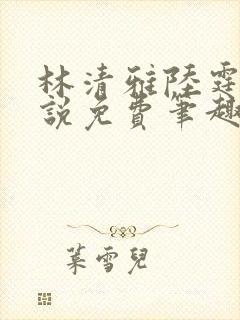 林清雅陸霆
說免費筆趣
葉雪兒